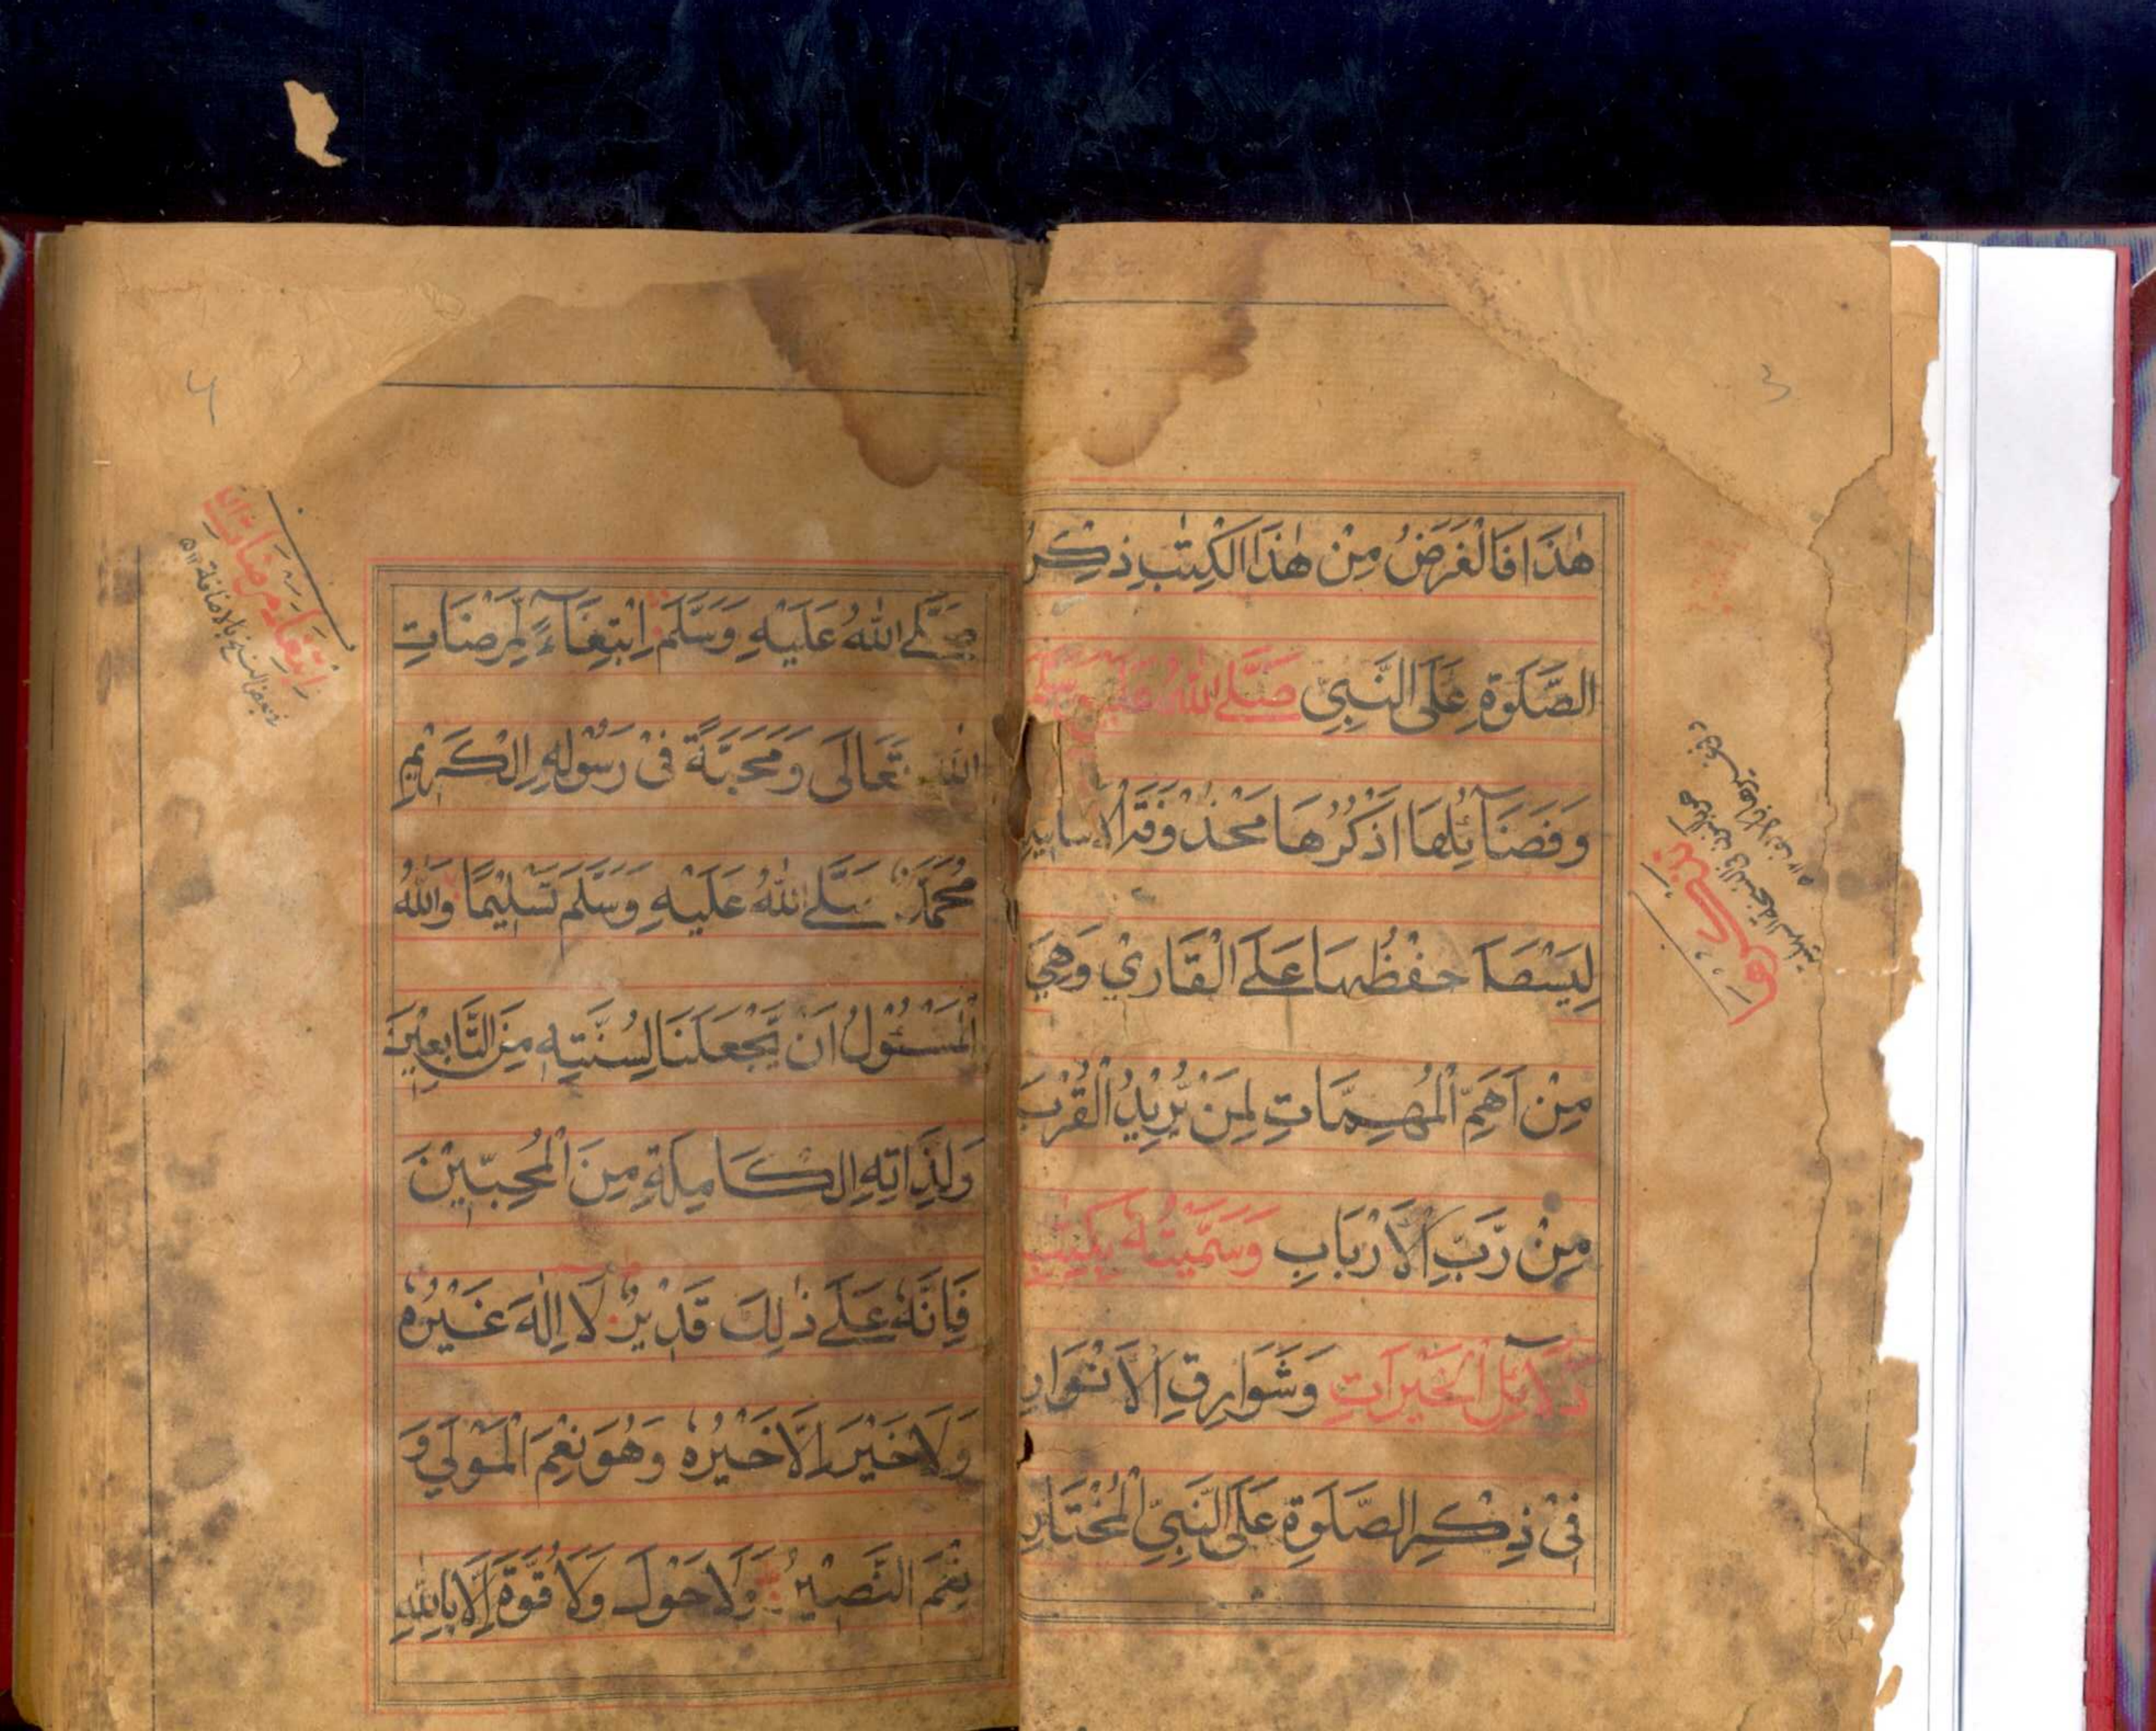 3
هٰذَا فَالْغَرَضُ مِنْ هٰذَا الْكِتٰبِ ذِكْرُ
الصَّلٰوةِ عَلَى النَّبِيِّ صَلَّے اللّٰهُ عَلَيْهِ وَسَلَّمَ
وَفَضَآئِلُهَا اَذْكُرُهَا مَحْذُوْفَةَ الْاَسَانِيْدِ
لِيَسْهَلَ حِفْظُهَا عَلَے الْقَارِيْ وَهِيَ
مِنْ اَهَمِّ الْمُهِمَّاتِ لِمَنْ يُّرِيْدُ الْقُرْبَ
مِنْ رَّبِّ الْاَرْبَابِ وَسَمَّيْتُهٗ بِكِتٰبِ
دَلَآئِلِ الْخَيْرَاتِ وَشَوَارِقِ الْاَنْوَارِ
فِيْ ذِكْرِ الصَّلٰوةِ عَلَى النَّبِيِّ الْمُخْتَارِ
صَلَّے اللّٰهُ عَلَيْهِ وَسَلَّمَ اِبْتِغَآءً لِّمَرْضَاتِ
اللّٰهِ تَعَالٰى وَمَحَبَّةً فِيْ رَسُوْلِهِ الْكَرِيْمِ
مُحَمَّدٍ صَلَّے اللّٰهُ عَلَيْهِ وَسَلَّمَ تَسْلِيْمًا وَاللّٰهُ
الْمَسْئُوْلُ اَنْ يَّجْعَلَنَا لِسُنَّتِهٖ مِنَ التَّابِعِيْنَ
وَلِذَاتِهِ الْكَامِلَةِ مِنَ الْمُحِبِّيْنَ
فَاِنَّهٗ عَلَے ذٰلِكَ قَدِيْرٌ لَا اِلٰهَ غَيْرُهٗ
وَلَا خَيْرَ اِلَّا خَيْرُهٗ وَهُوَ نِعْمَ الْمَوْلٰي وَ
نِعْمَ النَّصِيْرُ وَلَا حَوْلَ وَلَا قُوَّةَ اِلَّا بِاللّٰهِ
ابتغاء مرضات الله